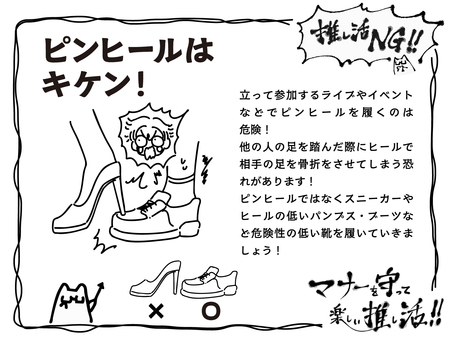 ピンヒールは
キケン！
推し活NG!!
立って参加するライブやイベント
などでピンヒールを履くのは
危険！
他の人の足を踏んだ際にヒールで
相手の足を骨折をさせてしまう恐
れがあります！
ピンヒールではなくスニーカーや
ヒールの低いパンプス・ブーツな
ど危険性の低い靴を履いていきま
しょう！
× ○
マナーを守って
楽しい推し活!!